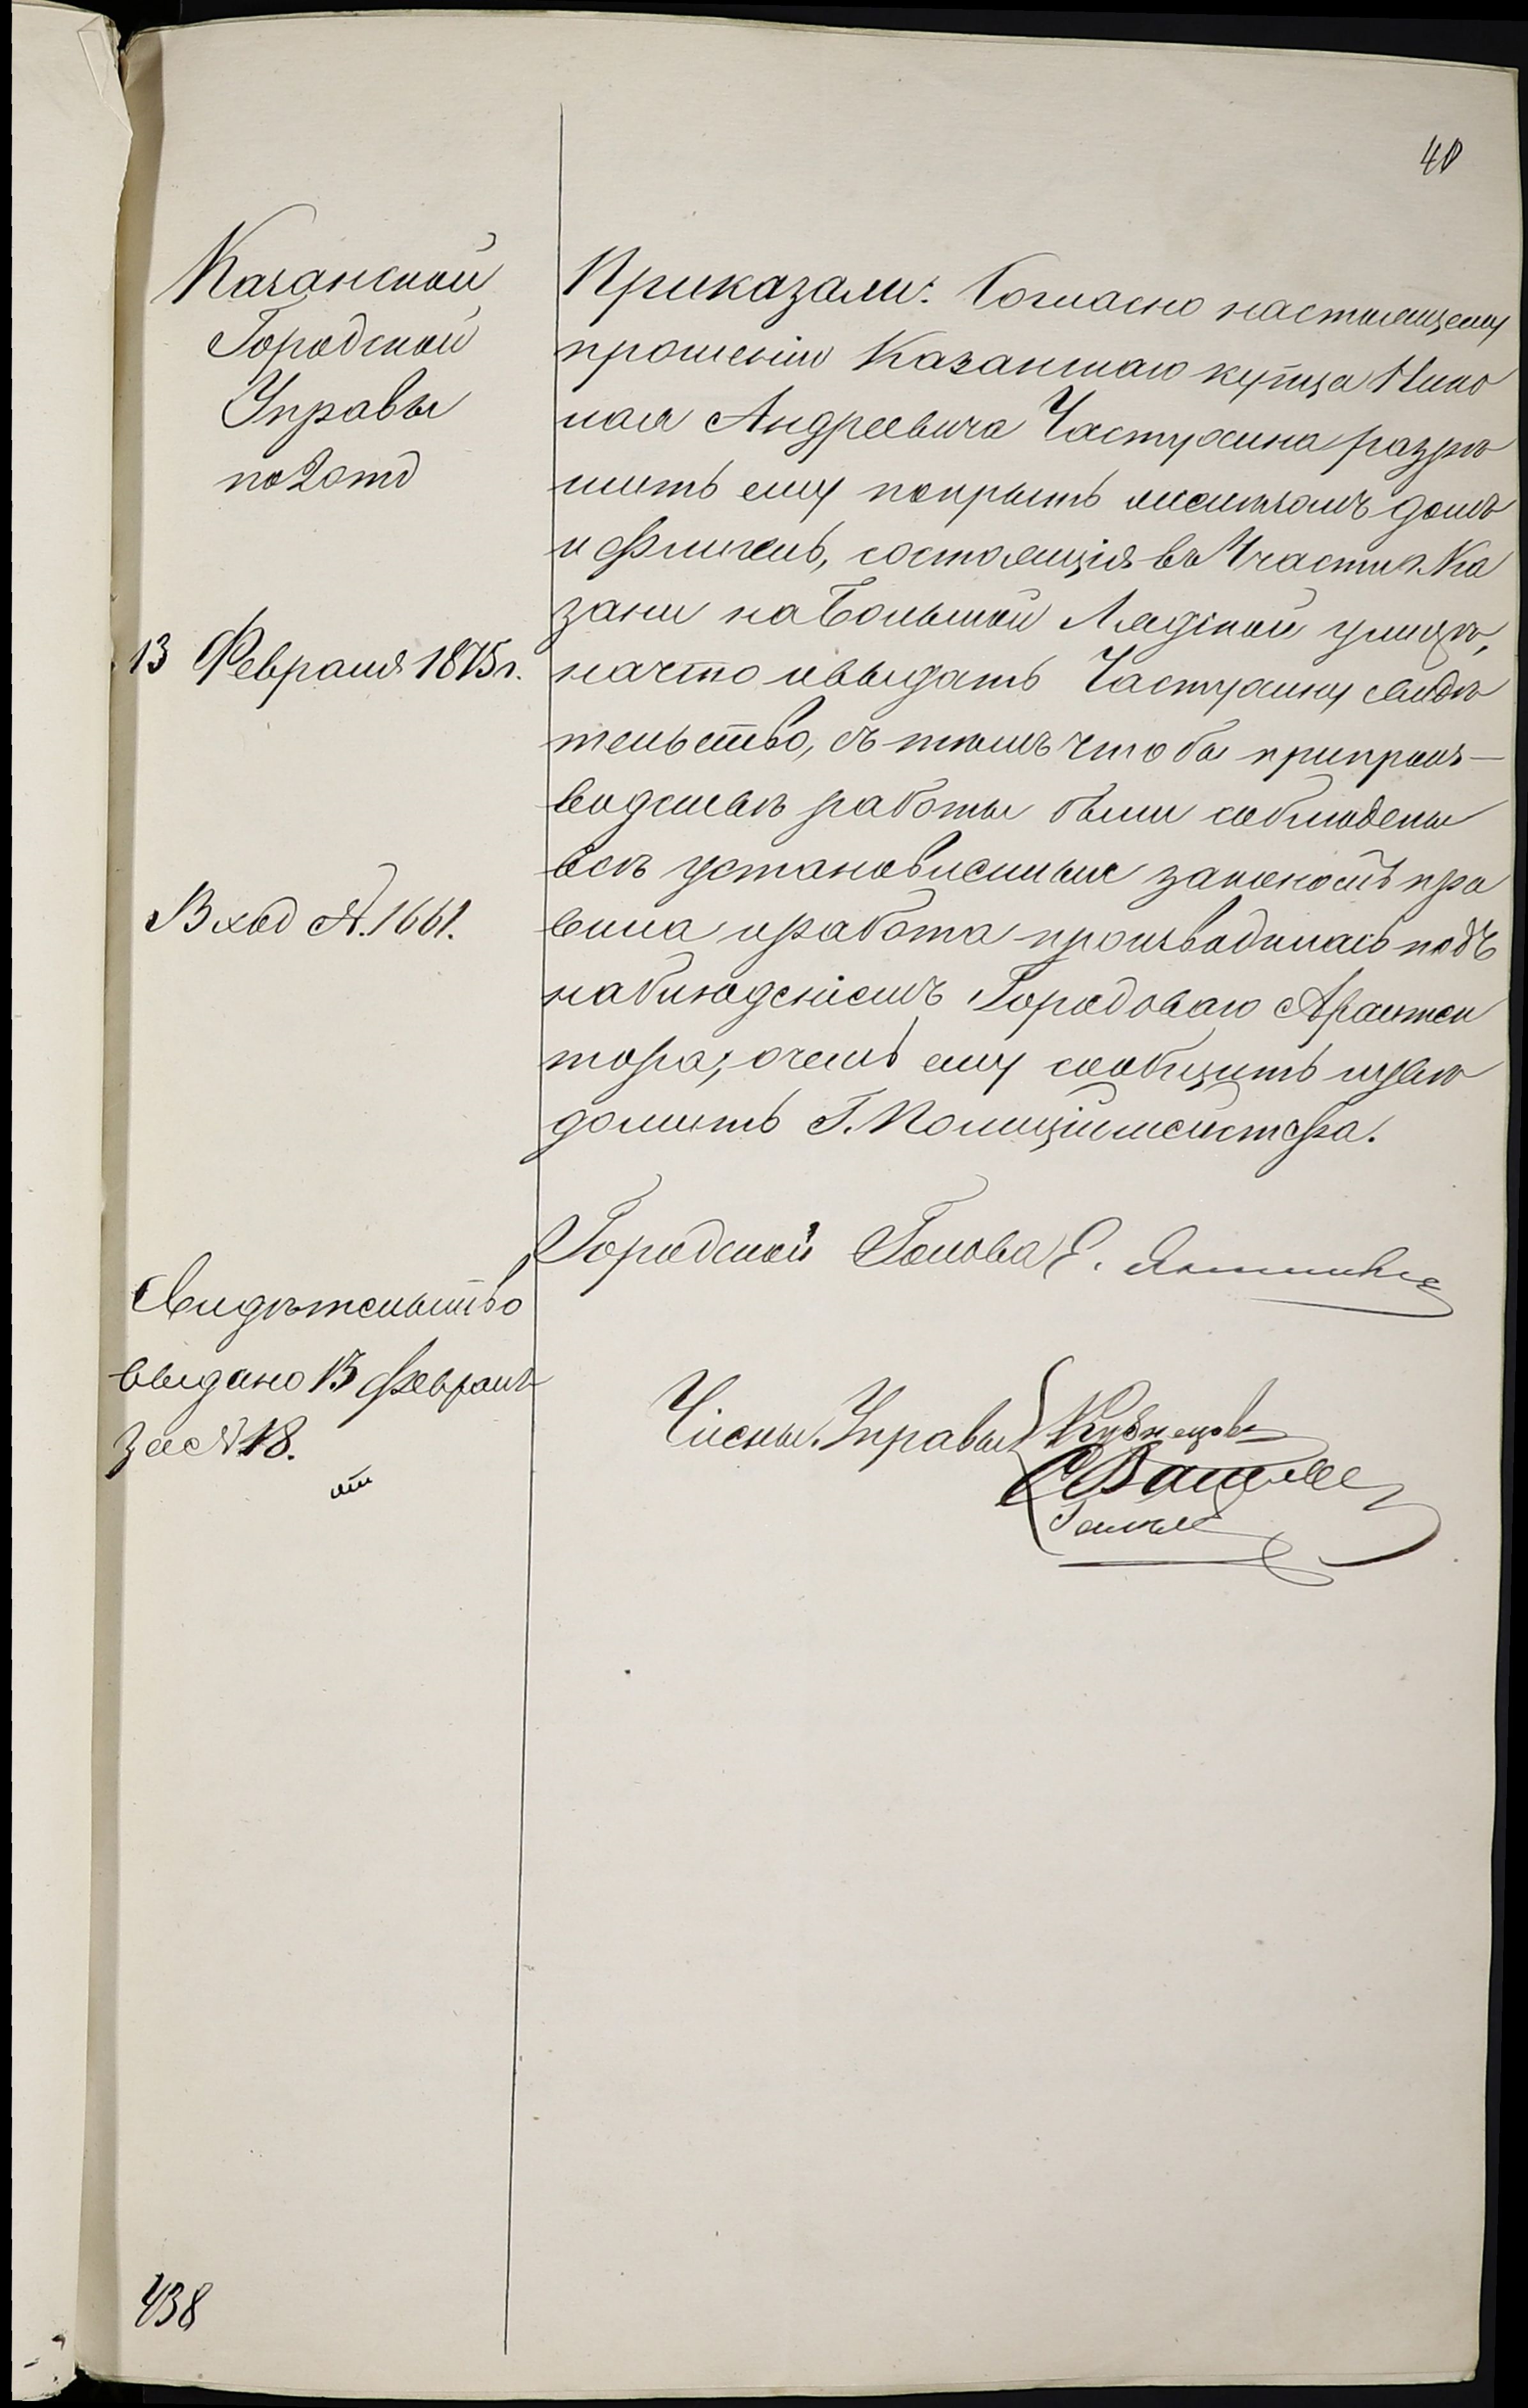 40
Казанской
Городской
Управы
по 2 отд
13 Февраля 1875 г.
Вход №. 1661.
Свидѣтельство
выдано 13 Февраля
за № 18.
Приказали: Согласно настоящему
прошенію Казанскаго купца Нико
лая Андреевича Частухина разрѣ
шить ему покрыть желѣзомъ домъ
и флигель, состоящія въ 1 части г. Ка
зани на Большой Лядской улицѣ,
на что и выдать Частухину свидѣ
тельство, съ тѣмъ чтобы при произ-
водствѣ работы были соблюдены
всѣ установленныя закономъ пра
вила и работа производилась подъ
наблюденіемъ Городоваго Архитек
тора; о чемъ ему сообщить и увѣ
домить Г. Полиціймейстера.
Городской Голова Е.
Члены Управы Кузнецовъ
438